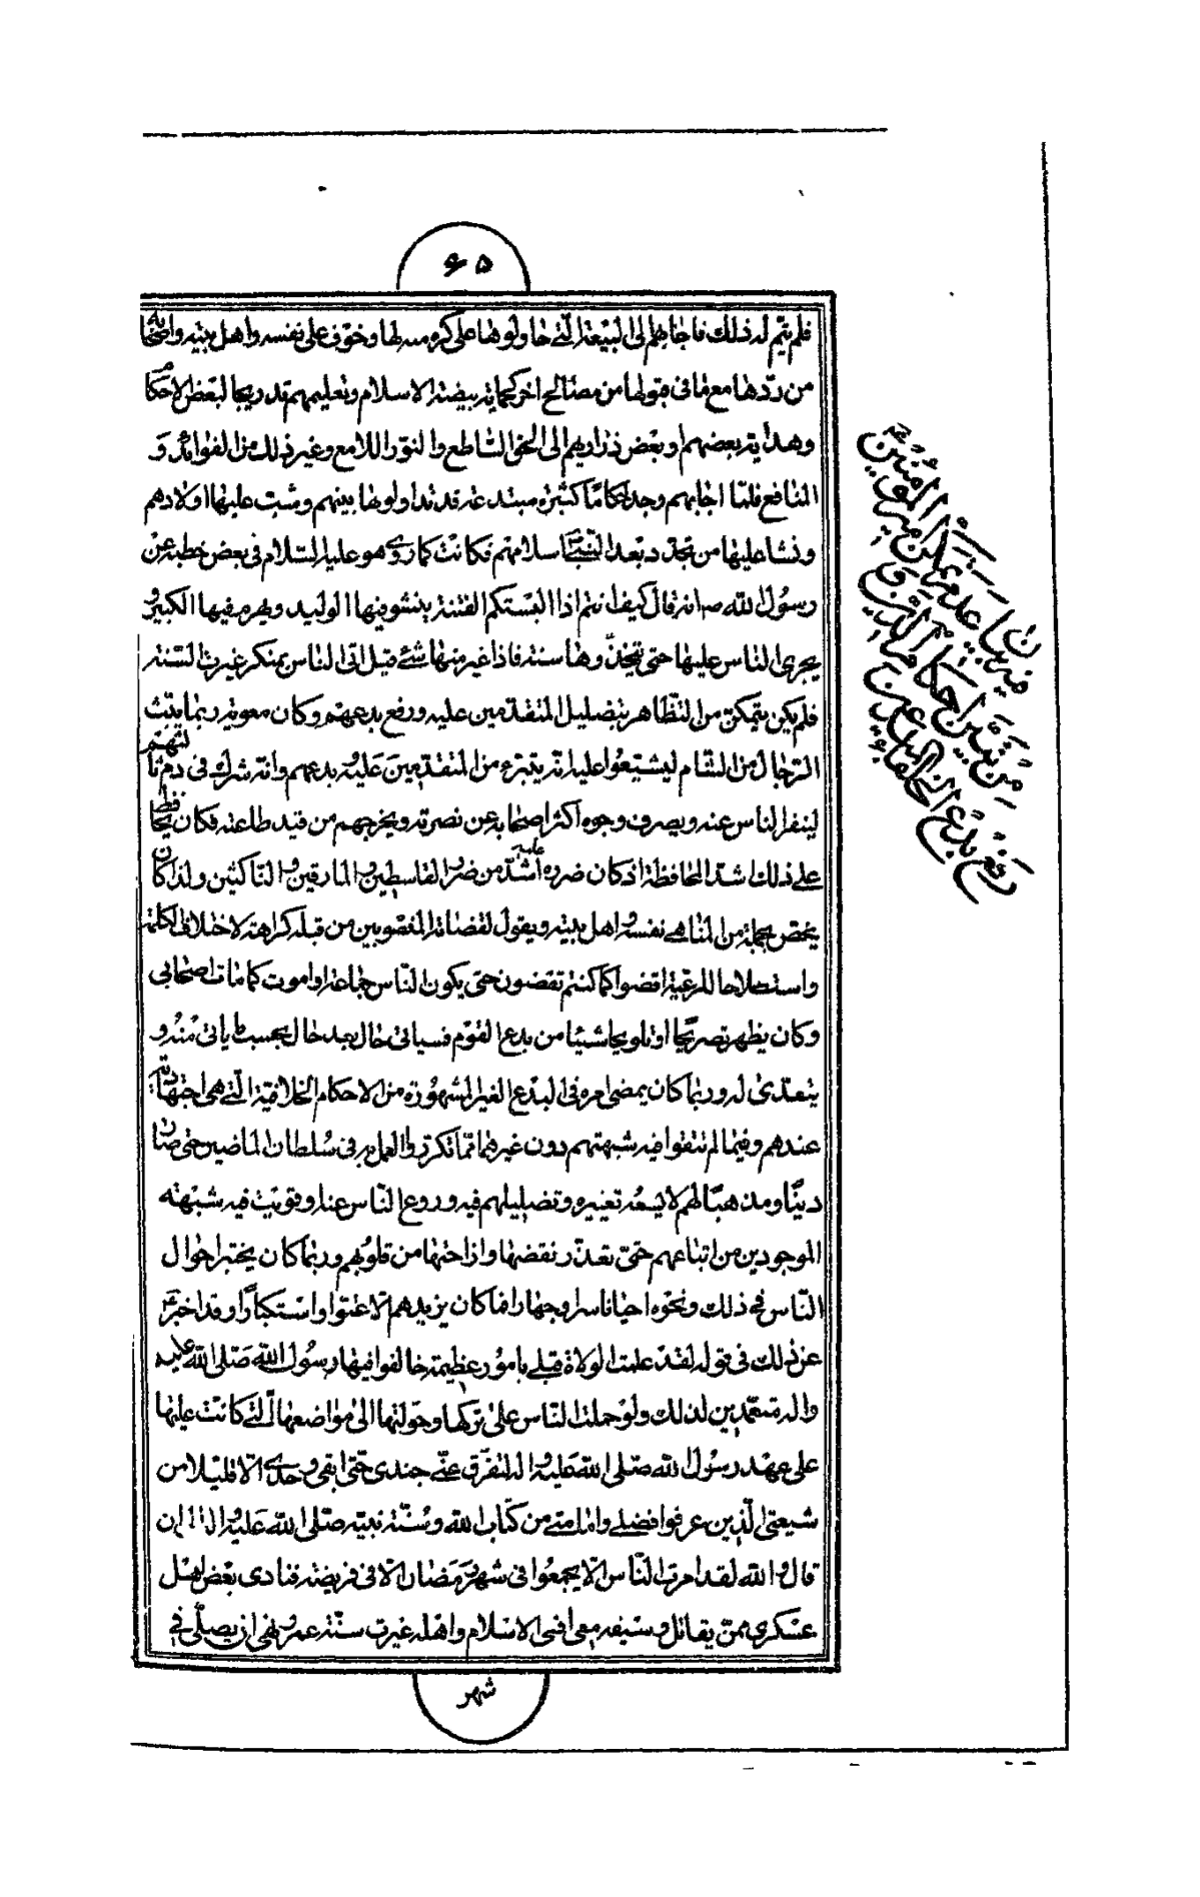 ۶۵
فلم يتم له ذلك فاجابهم الى البيعة التى حاولوها على كره منه لها وخوف على نفسه واهل بيته واصحابه
من ردها مع ما فى قبولها من مصالح اخر كحماية بيضة الاسلام وتعليمهم تدريجا لبعض الاحكام
وهداية بعضهم او بعض ذراريهم الى الحق الساطع والنور اللامع وغير ذلك من الفوائد و
المنافع فلما اجابهم وجد احكاما كثيرة مبتدعة قد تداولوها بينهم وشب عليها اولادهم
ونشا عليها من تجدد بعد النبى اسلامهم فكانت كما روى هو عليه السلام فى بعض خطبه عن
رسول الله ص انه قال كيف انتم اذا البستكم الفتنة ينشو فيها الوليد ويهرم فيها الكبير و
يجرى الناس عليها حتى يتخذوها سنة فاذا غير منها شئ قيل اتى الناس بمنكر غيرت السنة
فلم يكن يتمكن من التظاهر بتضليل المتقدمين عليه ورفع بدعهم وكان معوية ربما يبث
الرجال من الشام ليشيعوا عليه انه يتبرء من المتقدمين عليه بدعهم وانه شرك فى دم ثالثهم
لينفر الناس عنه ويصرف وجوه اكثر اصحابه عن نصرته ويخرجهم من قيد طاعته فكان يحافظ
على ذلك اشد المحافظة اذ كان ضرره عليه اشد من ضرر القاسطين والمارقين والناكثين ولذا كان
يخص بجملة من المناهى نفسه واهل بيته ويقول لقضاته المنصوبين من قبله كراهة لاختلاف الكلمة
واستصلاحا للرعية اقضوا كما كنتم تقضون حتى يكون الناس جماعة او اموت كما مات اصحابى
وكان يظهر تصريحا او تلويحا شيئا من بدع القوم فسياتى حال بعد حال بحسب ما ياتى منه و
يتعدى له وربما كان يمضى امره فى البدع الغير المشهورة من الاحكام الخلافية التى هى اجتهادية
عندهم وفيما لم تتقوا فيه شبهتهم دون غيرهما مما تكرر والعمل به فى سلطان الماضين حتى صار
دينا ومذهبا لهم لا يسعه تغييره وتضليلهم فيه وروع الناس عنه او قويت فيه شبهته
الموجودين من اتباعهم حتى تعذر نقضها وازاحتها من قلوبهم وربما كان يختبر احوال
الناس فى ذلك ونحوه احيانا سرا وجهارا فما كان يزيدهم الا عتوا واستكبارا وقد اخبر
عن ذلك فى قوله لقد علمت الولاة قبلى بامور عظيمة خالفوا فيها رسول الله صلى الله عليه
واله متعمدين لذلك ولو حملت الناس على تركها وحولتها الى مواضعها التى كانت عليها
على عهد رسول الله صلى الله عليه واله لتفرق عنى جندى حتى ابقى وحدى الا قليلا من
شيعتى الذين عرفوا فضلى وامامتى من كتاب الله وسنة نبيه صلى الله عليه واله الى ان
قال والله لقد امرت الناس الا يجمعوا فى شهر رمضان الا فى فريضة فنادى بعض اهل
عسكرى ممن يقاتل وسيفه معى انعى الاسلام واهله غيرت سنة عمر ونهى ان يصلى فى
شهر
فى بيان عدم تمكن امير المؤمنين
من تغيير احكام الدين و
رفع بدع الخلفاء